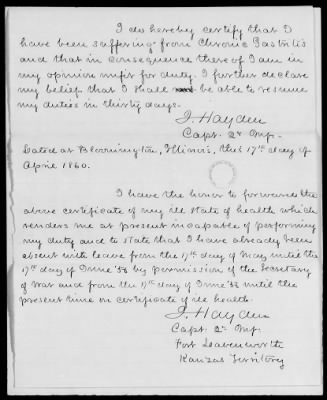 I do hereby certify that I
have been suffering from Chronic Gastritis
and that in consequence thereof I am in
my opinion unfit for duty. I further declare
my belief that I shall be able to resume
my duties in thirty days.
J. Hayden
Capt. 2d Inf.
Dated at Bloomington, Illinois, this 17th day of
April 1860.
I have the honor to forward the
above certificate of my ill state of health which
renders me at present incapable of performing
my duty and to state that I have already been
absent with leave from the 17th day of May until the
17th day of June '58 by permission of the Secretary
of War and from the 17th day of June '58 until the
present time on certificate of ill health.
J. Hayden
Capt. 2d Inf.
Fort Leavenworth
Kanzas Territory